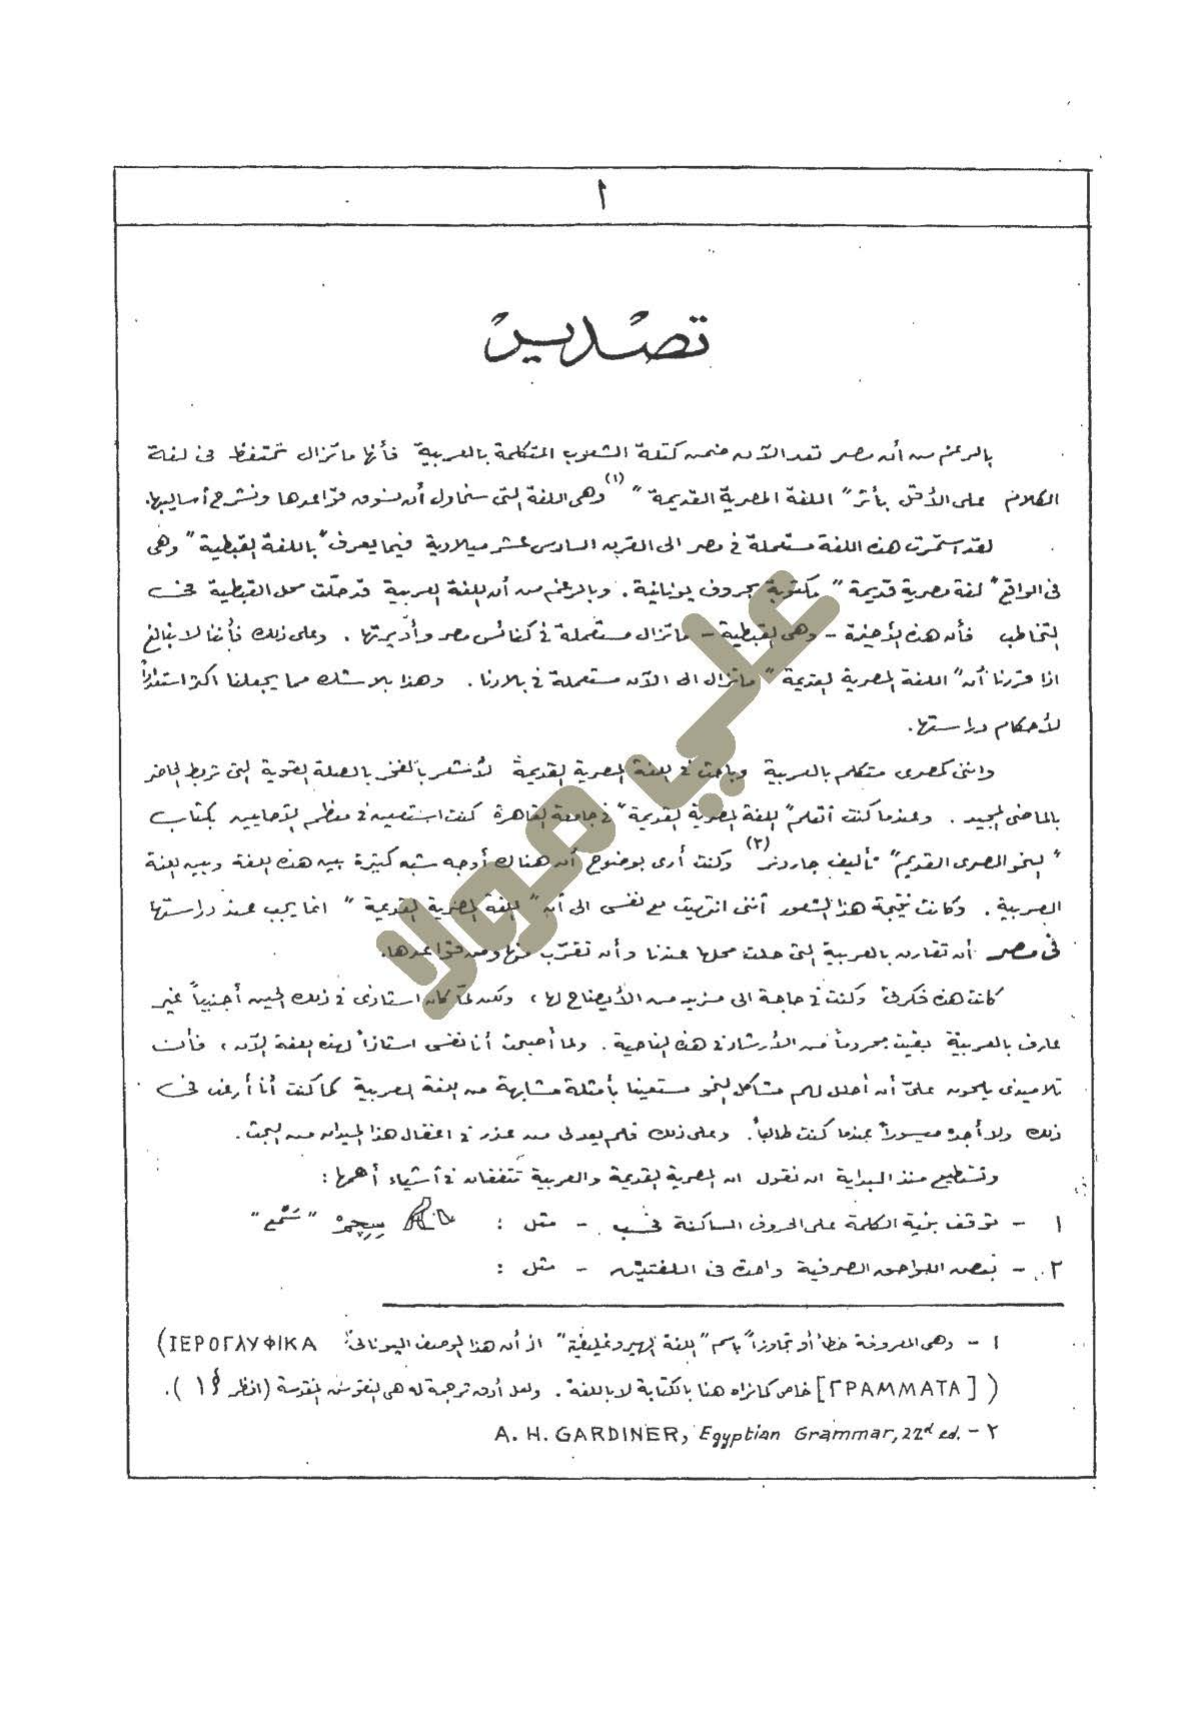 ١
تصدير
بالرغم من أن مصر تعد الآن ضمن كتلة الشعوب المتكلمة بالعربية فأنها ماتزال تحتفظ فى لغة
الكلام على الأقل بأثر "اللغة المصرية القديمة" (١) وهى اللغة التى سنحاول أن نسوق قواعدها ونشرح أساليبها.
لقد استمرت هذه اللغة مستعملة فى مصر الى القرن السادس عشر ميلادية فيما يعرف "باللغة القبطية" وهى
فى الواقع "لغة مصرية قديمة" مكتوبة بحروف يونانية. وبالرغم من أن اللغة العربية قد حلت محل القبطية فى
التخاطب فأن هذه الأخيرة - وهى القبطية - ماتزال مستعملة فى كنائس مصر وأديرتها. وعلى ذلك فأننا لا نبالغ
اذا قررنا أن "اللغة المصرية القديمة" ماتزال الى الآن مستعملة فى بلادنا. وهذا بلا شك مما يجعلنا اكثر استعداداً
لأحكام دراستها.
واننى كمصرى متكلم بالعربية وباحث فى اللغة المصرية القديمة لأشعر بالفخر بالصلة القوية التى تربط الحاضر
بالماضى المجيد. وعندما كنت أتعلم "اللغة المصرية القديمة" فى جامعة القاهرة كنت استعين فى معظم الأحايين بكتاب
"النحو المصرى القديم" تأليف جاردنر (٢) وكنت أرى بوضوح أن هناك أوجه شبه كثيرة بين هذه اللغة وبين اللغة
العربية. وكانت نتيجة هذا الشعور أننى انتهيت مع نفسى الى أن "اللغة المصرية القديمة" انما يجب عند دراستها
فى مصر أن تقارن بالعربية التى حلت محلها عندنا وأن تقرّب منها ومن قواعدها.
كانت هذه فكرتى وكنت فى حاجة الى مزيد من الأيضاح لها، ولكن لمّا كان استاذى فى ذلك الحين أجنبياً غير
عارف بالعربية بقيت محروماً من الأرشاد فى هذه الناحية. ولما أصبحت أنا نفسى استاذاً لهذه اللغة الآن، فأن
تلاميذى يلحون علىّ أن أحلل لهم مشاكل النحو مستعينا بأمثلة مشابهة من اللغة العربية كما كنت أنا أرغب فى
ذلك ولا أجده ميسوراً عندما كنت طالباً. وعلى ذلك فلم يعد لى من عذر فى اغفال هذا الميدان من البحث.
ونستطيع منذ البداية ان نقول ان المصرية القديمة والعربية تتفقان فى أشياء أهمها:
١ - توقف بنية الكلمة على الحروف الساكنة فحسب - مثل : سچم "سَمْع"
٢ - بعض اللواحق الصرفية واحدة فى اللغتين - مثل :
١ - وهى المعروفة خطأ أو تجاوزاً باسم "اللغة الهيروغليفية" اذ أن هذا الوصف اليونانى (ΙΕΡΟΓΛΥΦΙΚΑ
[ΓΡΑΜΜΑΤΑ]) خاص كما نراه هنا بالكتابة لا باللغة. ولعل أدق ترجمة له هى النقوش المقدسة (انظر § ١).
٢ - A. H. GARDINER, Egyptian Grammar, 22d ed.
علي مولا